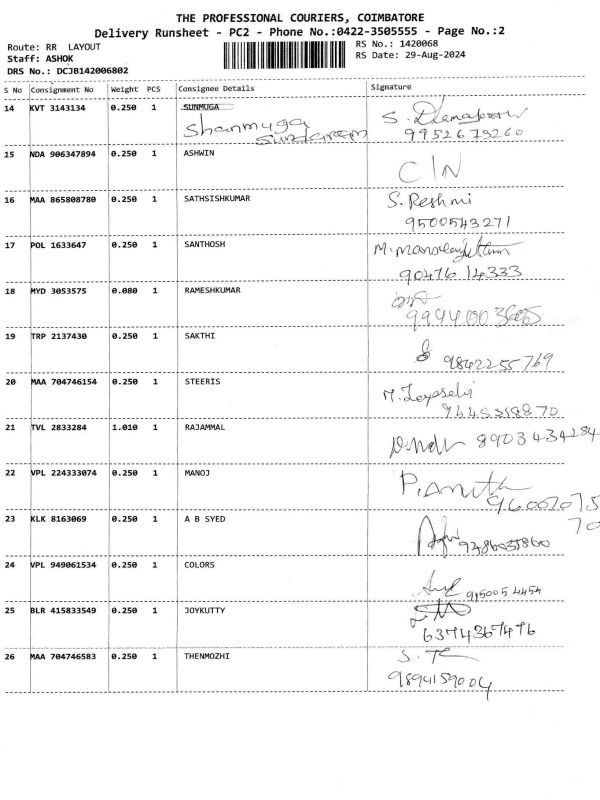 THE PROFESSIONAL COURIERS, COIMBATORE
Delivery Runsheet - PC2 - Phone No.:0422-3505555 - Page No.:2
Route: RR LAYOUT RS No.: 1420068
Staff: ASHOK RS Date: 29-Aug-2024
DRS No.: DCJB142006802
S No Consignment No Weight PCS Consignee Details Signature
14 KVT 3143134 0.250 1 SUNMUGA
Shanmuga
Sundaram
9952679260
15 NDA 906347894 0.250 1 ASHWIN
C/N
16 MAA 865808780 0.250 1 SATHSISHKUMAR S. Reshmi
9500543271
17 POL 1633647 0.250 1 SANTHOSH
90476 14333
18 MYD 3053575 0.080 1 RAMESHKUMAR
19 TRP 2137430 0.250 1 SAKTHI
9842255769
20 MAA 704746154 0.250 1 STEERIS
21 TVL 2833284 1.010 1 RAJAMMAL
8903434284
22 VPL 224333074 0.250 1 MANOJ P. Anitha
23 KLK 8163069 0.250 1 A B SYED
24 VPL 949061534 0.250 1 COLORS
25 BLR 415833549 0.250 1 JOYKUTTY
6374367476
26 MAA 704746583 0.250 1 THENMOZHI
9894159004